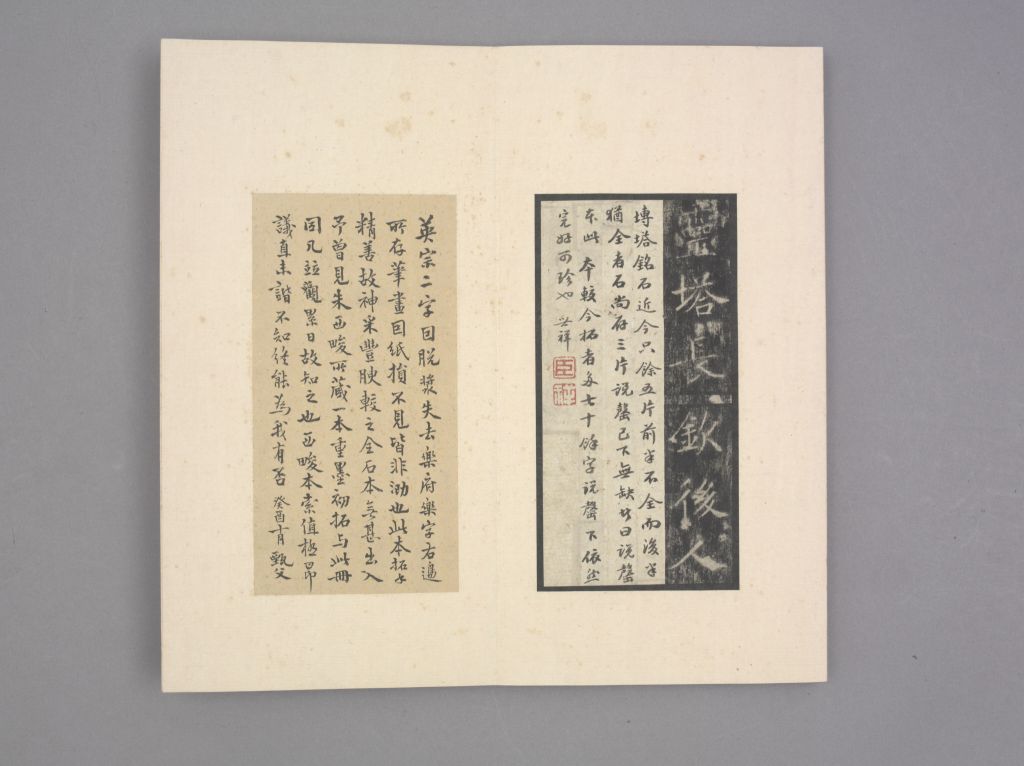 靈塔長欽後人
塼塔銘石近今只餘五片前半不全而後半
猶全者石尚存三片說罄已下無缺字曰說罄
本此本較今拓者多七十餘字說罄下依然
完好可珍也 祥
臣
英宗二字因脫漿失去樂府樂字右邊
所存筆畫因紙損不見皆非泐也此本拓手
精善故神采豐腴較之全石本無甚出入
予曾見朱西畯所藏一本重墨初拓与此冊
同几並觀累日故知之也西畯本索值極昂
議直未諧不知終能為我有否 癸酉十月 甄父